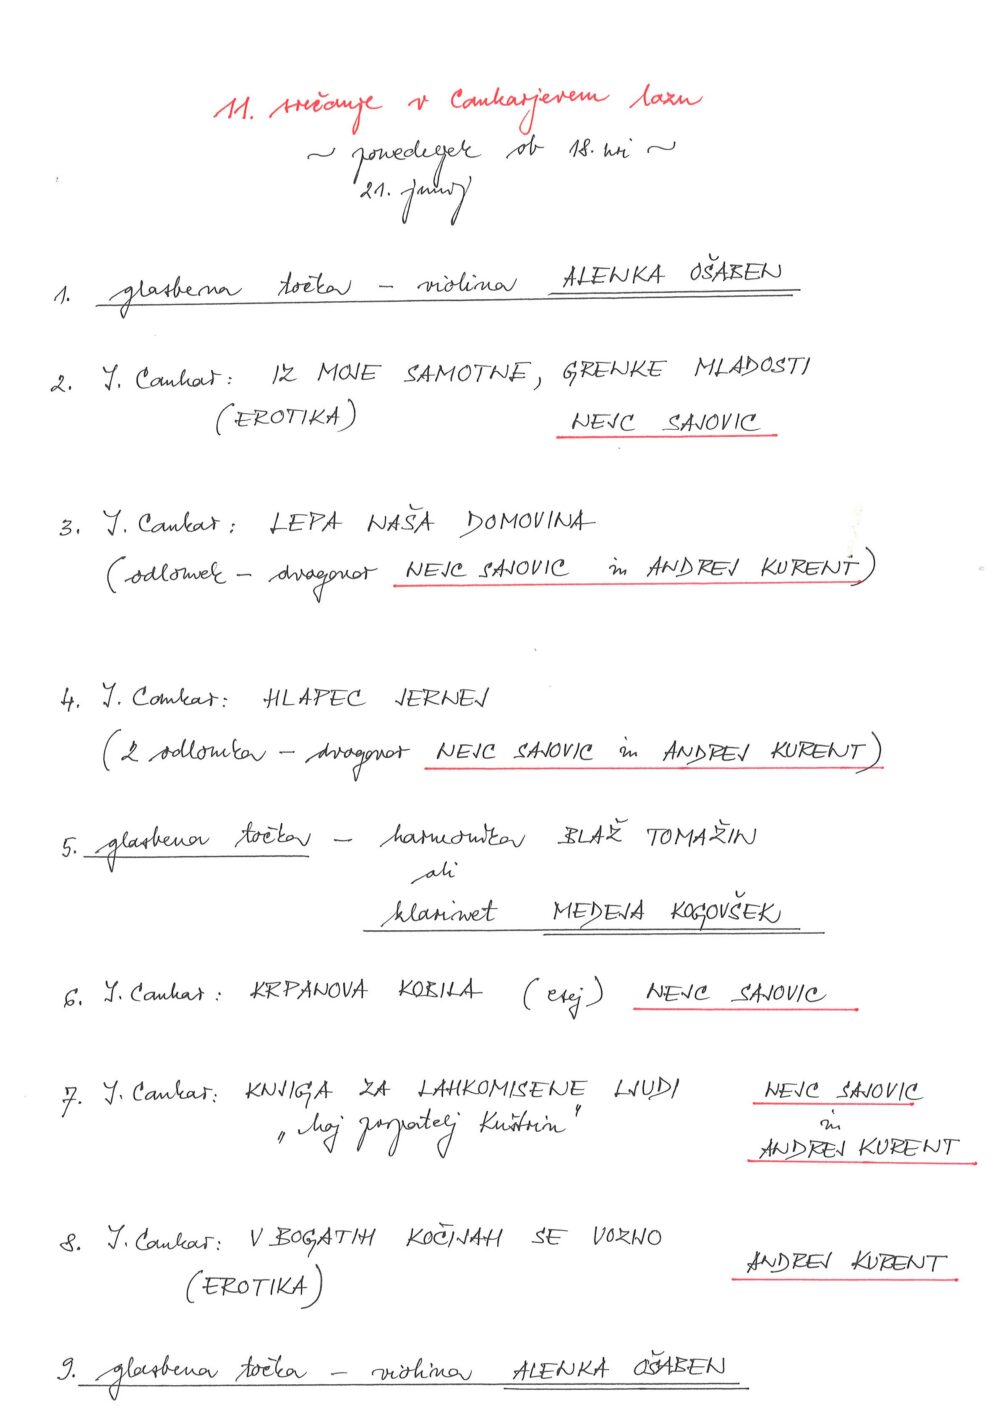 11. srečanje v Cankarjevem lazu
~ ponedeljek ob 18. uri ~
21. junij
1. glasbena točka – violina ALENKA OŠABEN
2. I. Cankar: IZ MOJE SAMOTNE, GRENKE MLADOSTI
(EROTIKA) NEJC SAJOVIC
3. I. Cankar: LEPA NAŠA DOMOVINA
(odlomek – dvogovor NEJC SAJOVIC in ANDREJ KURENT)
4. I. Cankar: HLAPEC JERNEJ
(2 odlomka – dvogovor NEJC SAJOVIC in ANDREJ KURENT)
5. glasbena točka – harmonika BLAŽ TOMAŽIN
ali
klarinet MEDEJA KOGOVŠEK
6. I. Cankar: KRPANOVA KOBILA (esej) NEJC SAJOVIC
7. I. Cankar: KNJIGA ZA LAHKOMISELNE LJUDI NEJC SAJOVIC
„Moj prijatelj Kuštrin" in
ANDREJ KURENT
8. I. Cankar: V BOGATIH KOČIJAH SE VOZIJO
(EROTIKA) ANDREJ KURENT
9. glasbena točka – violina ALENKA OŠABEN